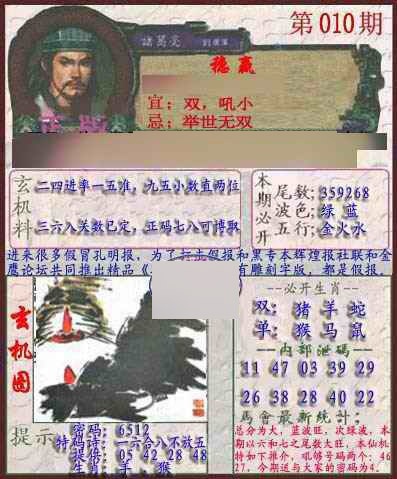 第010期
諸葛亮
稳赢
正版
宜：双，吼小
忌：举世无双
玄机料
二四进率一五准，九五小数直两位
三六八关数已定，正码七八可博取
本期必开
尾数：359268
波色：绿 蓝
五行：金火水
进来很多假冒孔明报，为了打击假报和黑专本辉煌报社联和金
鹰论坛共同推出精品《 有雕刻字版，都是假报。
玄机图
--必开生肖--
双：猪 羊 蛇
单：猴 马 鼠
--内部泄码--
11 47 03 39 29
26 38 28 40 22
马會最新统计：
总分为大，蓝波旺，次绿波，本
期以六和七之尾数大旺，本仙机
特如下推介，吼够号码两个：46
27，今期送与大家的密码为4。
提示
密码：6512
特码诗：一六合八不放五
提供：05 42 28 48
生肖：羊、猴